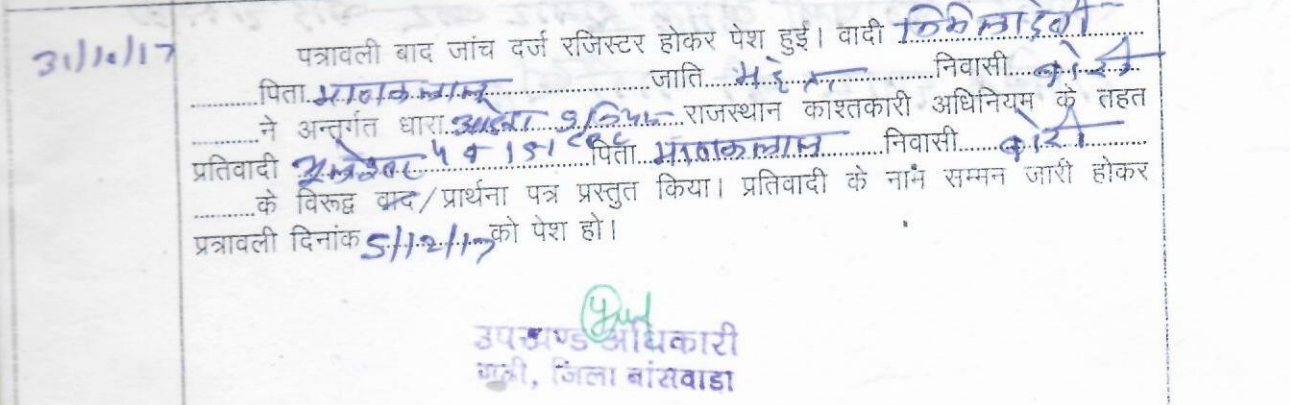 31/10/17
पत्रावली बाद जांच दर्ज रजिस्टर होकर पेश हुई। वादी
पिता माणकलाल जाति निवासी बोरी
ने अन्तर्गत धारा राजस्थान काश्तकारी अधिनियम के तहत
प्रतिवादी व 151 CPC पिता माणकलाल निवासी बोरी
के विरूद्ध वाद/प्रार्थना पत्र प्रस्तुत किया। प्रतिवादी के नाम सम्मन जारी होकर
प्रत्रावली दिनांक 5/12/17 को पेश हो।
उपखण्ड अधिकारी
जिला बांसवाडा